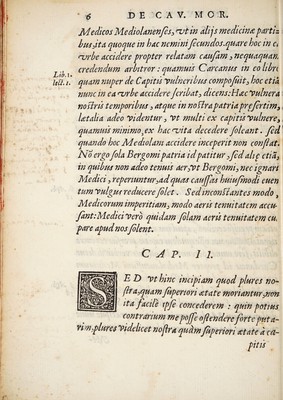 6 DE CAV. MOR.
Medicos Mediolanenses, vt in alijs medicinæ partibus
bus, ita quoque in hac nemini secundos. quare hoc in ea
vrbe accidere propter relatam causam, nequaquam
credendum arbitror: quamuis Carcanus in eo libro
Lib. 1.
lect. 1.
quam nuper de Capitis vulneribus composuit, hoc etiã
nunc in ea vrbe accidere scribat, dicens: Hac vulnera
nostris temporibus, atque in nostra patria præsertim,
lætalia adeo videntur, vt multi ex capitis vulnere,
quamuis minimo, ex hac vita decedere soleant. sed
quando hoc Mediolani accidere inceperit non constat.
Nõ ergo sola Bergomi patria id patitur, sed aliæ etiã,
in quibus non adeo tenuis aer, vt Bergomi, nec ignari
Medici, reperiuntur, ad quas caussas huiusmodi euen
tum vulgus reducere solet. Sed inconstantes modo,
Medicorum imperitiam, modo aeris tenuitatem accu
sant: Medici verò quidam solam aeris tenuitatem cul
pare apud nos solent.
CAP. II.
SED vt hinc incipiam quod plures no-
stra, quam superiori ætate moriantur, non
ita facilè ipse concederem: quin potius
contrarium me posse ostendere fortè puta
rim, plures videlicet nostra quàm superiori ætate à ca-
pitis